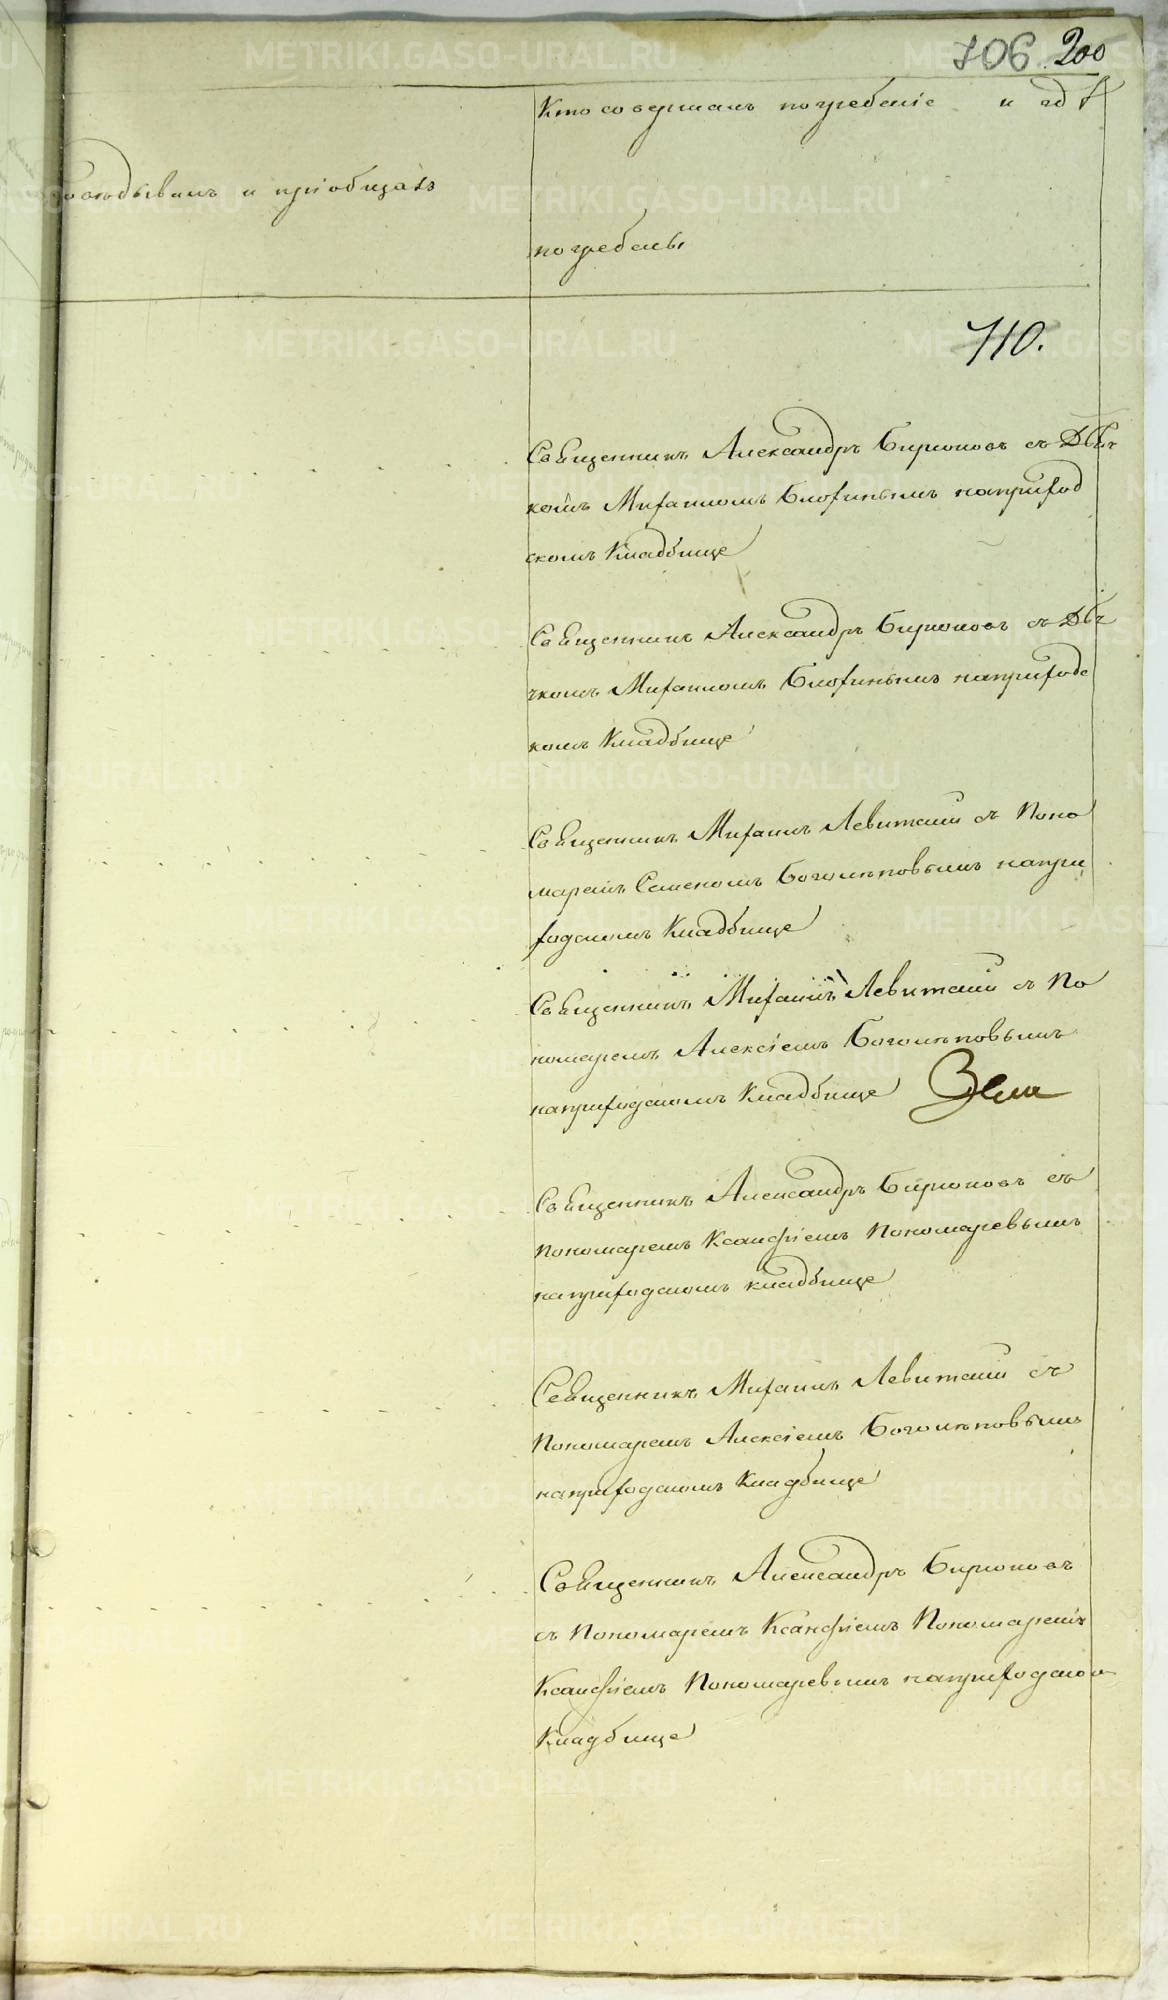 706 200
Кто совершалъ погребеніе и гдѣ
исповѣдывалъ и пріобщалъ
погребены
710.
Священникъ Александръ Бирюковъ съ Дья
комъ Михаиломъ Блохинымъ наприход
скомъ Кладбище
Священникъ Александръ Бирюковъ съ Дья
чкомъ Михаиломъ Блохинымъ наприходс
комъ Кладбище
Священникъ Михаилъ Левитскій съ Поно
маремъ Семеномъ Боголеповымъ напри
ходскомъ Кладбище
Священникъ Михаилъ Левитскій съ По
номаремъ Алексіемъ Боголеповымъ
наприходскомъ Кладбище
Священникъ Александръ Бирюковъ съ
Пономаремъ Ксанфіемъ Пономаревымъ
наприходскомъ кладбище
Священникъ Михаилъ Левитскій съ
Пономаремъ Алексіемъ Боголеповымъ
наприходскомъ Кладбище
Священникъ Александръ Бирюковъ
съ Пономаремъ Ксанфіемъ Пономаремъ
Ксанфіемъ Пономаревымъ наприходском
Кладбище
METRIKI.GASO-URAL.RU